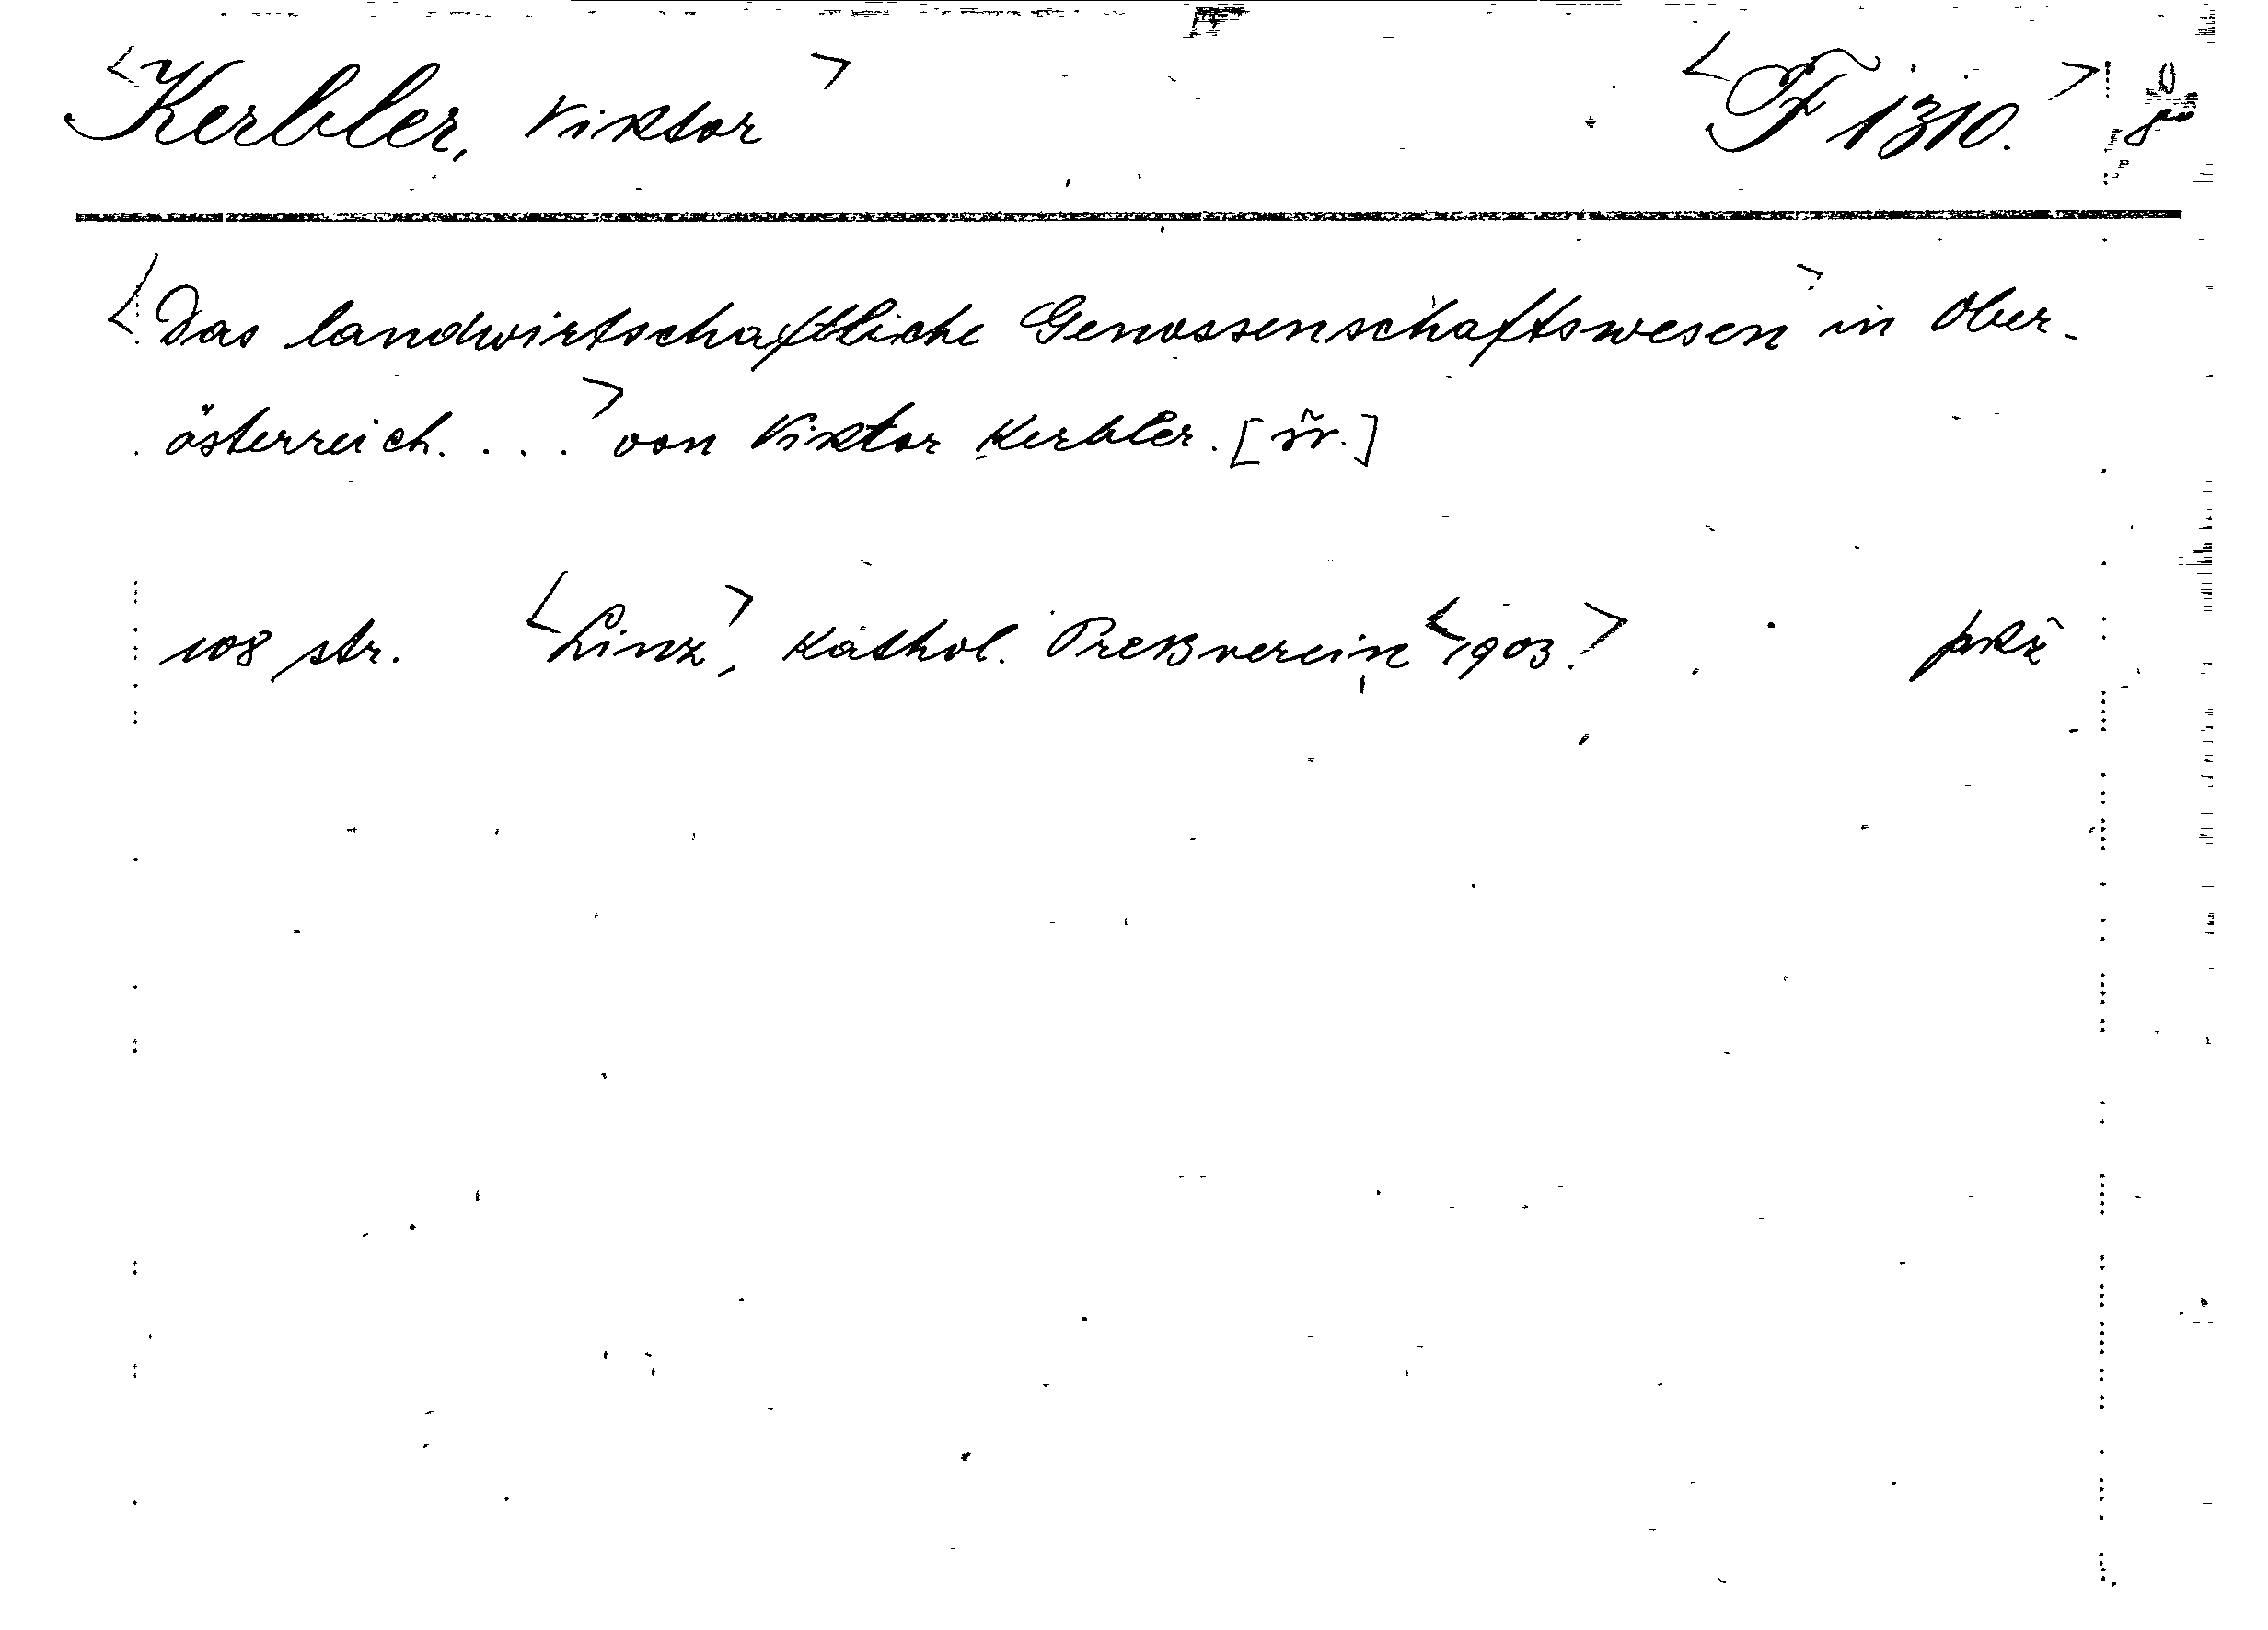 <Kerbler, Viktor> <F 1310.>
<Das landwirtschaftliche Genossenschaftswesen> in Ober-
österreich. . . .> von Viktor Kerbler.
108 str. <Linz>, Kathol. Preßverein <1903.>